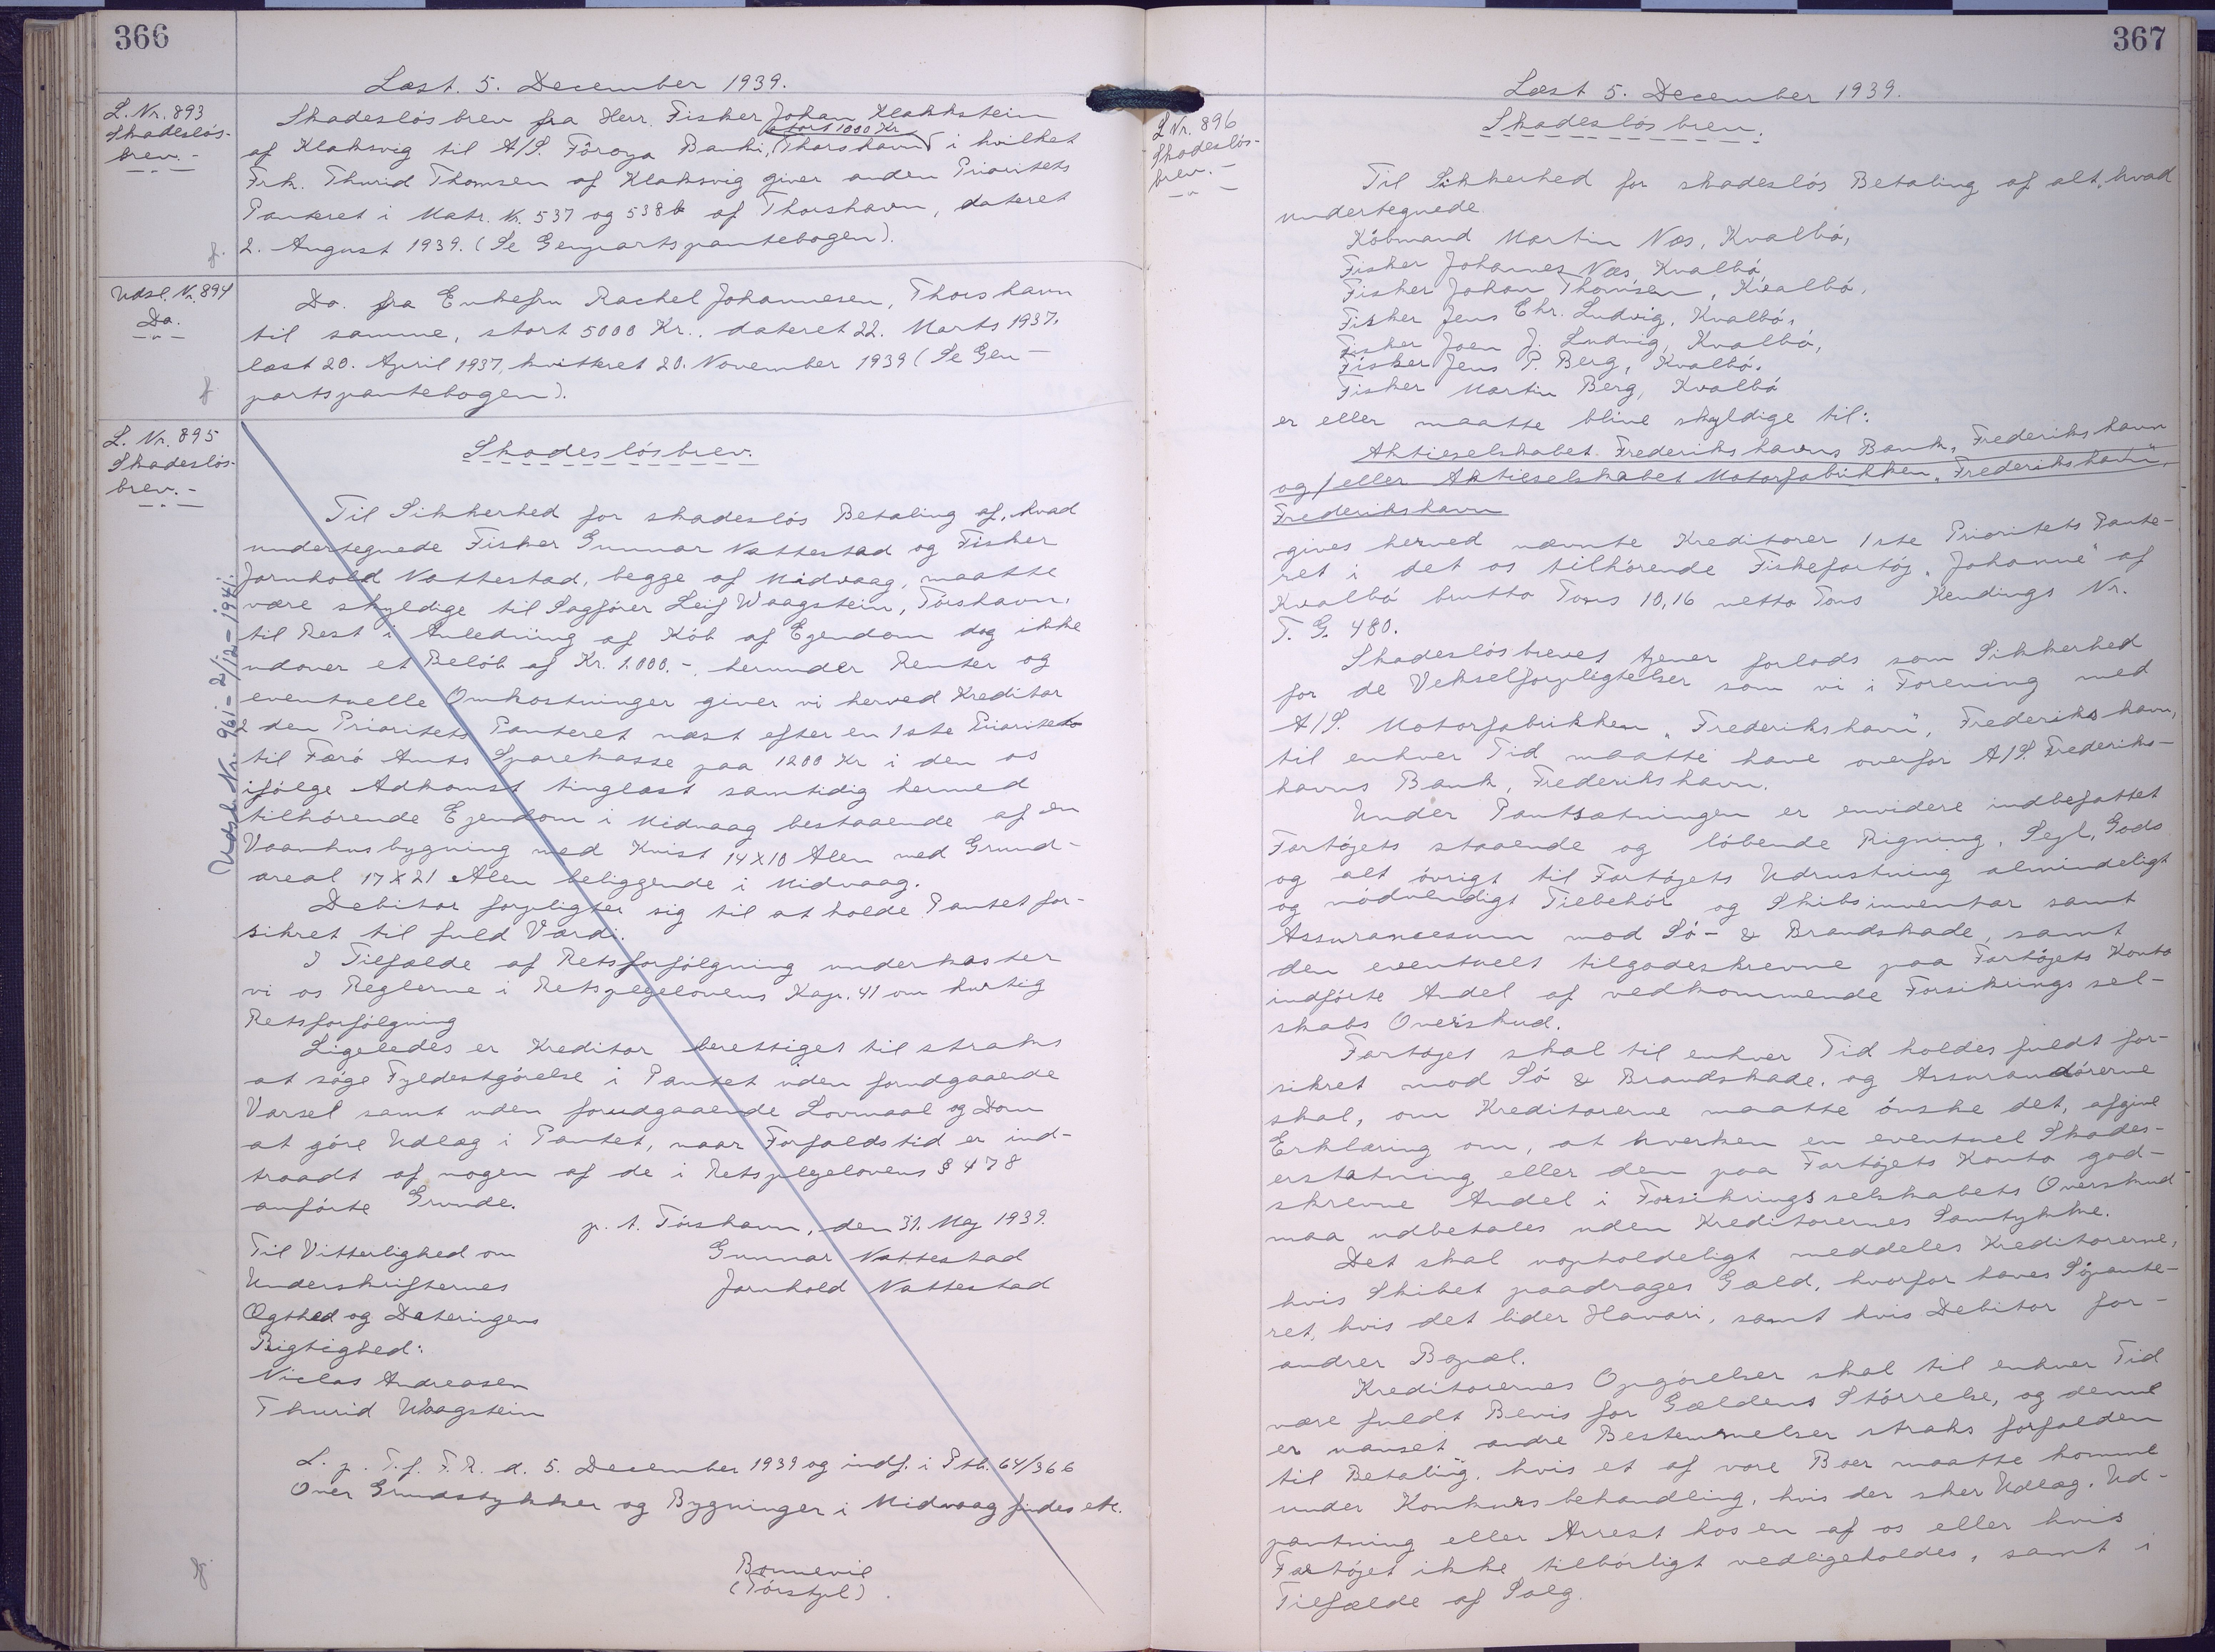 366
Læst. 5. December 1939.
L. Nr. 893
Skadeslös-
brev. -
Skadeslösbrev fra Herr. Fisker Johan Klakkstein
stort 1000 Kr
af Klaksvig til A/S. Föroya Banki, (Thorshavn) i hvilket
Frk. Thurid Thomsen af Klaksvig giver anden Prioritets
Panteret i Matr. Nr. 537 og 538b af Thorshavn, dateret
2. August 1939. (Se Genpartspantebogen).
Udsl. Nr. 894
Do.
Do. fra Enkefru Rachel Johannesen, Thorshavn
til samme, stort 5000 Kr., dateret 22. Marts 1937.
læst 20. April 1937, kvitteret 20. November 1939 (Se Gen-
partspantebogen).
L. Nr. 895
Skadeslös-
brev. -
Skadeslösbrev.
Udsl. Nr. 961 - 2/12 - 1941.
Til Sikkerhed for skadeslös Betaling af, hvad
undertegnede Fisker Gunnar Nattestad og Fisker
Jornhold Nattestad, begge af Midvaag, maatte
være skyldige til Sagförer Leif Waagstein, Tórshavn.
til Rest i Anledning af Köb af Ejendom dog ikke
udover et Belöb af Kr. 1.000.-, herunder Renter og
eventuelle Omkostninger giver vi herved Kreditor
2 den Prioritets Panteret næst efter en 1ste Prioritets
til Færö Amts Sparekasse paa 1200 Kr i den os
ifölge Adkomst tinglæst samtidig hermed
tilhörende Ejendom i Midvaag bestaaende af en
Vaanhusbygning med Kvist 14 X 10 Alen med Grund-
areal 17 X 21 Alen beliggende i Midvaag.
Debitor forpligter sig til at holde Pantet for-
sikret til fuld Værdi.
I Tilfælde af Retsforfölgning underkaster
vi os Reglerne i Retsplejelovens Kap. 41 om hurtig
Retsforfölgning
Ligeledes er Kreditor berettiget til straks
at söge Fyldestgörelse i Pantet uden forudgaaende
Varsel samt uden forudgaaende Lovmaal og Dom
at göre Udlæg i Pantet, naar Forfaldstid er ind-
traadt af nogen af de i Retsplejelovens § 478
anförte Grunde.
p. t. Tórshavn, den 31. Maj 1939.
Til Vitterlighed om
Gunnar Nattestad
Underskrifternes
Jornhold Nattestad
Ægthed og Dateringens
Rigtighed:
Niclas Andreasen
Thurid Waagstein
L. p. T. f. F. R. d. 5. December 1939 og indf. i Ptb. 64/366
Over Grundstykker og Bygninger i Midvaag findes etc.
(Tórstjl).
367
Læst 5. December 1939.
L Nr. 896
Skadeslös-
brev. -
Skadeslösbrev.
Til Sikkerhed for skadeslös Betaling af alt, hvad
undertegnede
Köbmand Martin Næs, Kvalbö,
Fisker Johannes Næs Kvalbö,
Fisker Johan Thomsen, Kvalbö,
Fisker Jens Chr. Ludvig, Kvalbö,
Fisker Joen J. Ludvig, Kvalbö,
Fisker Jens P. Berg, Kvalbö.
Fisker Martin Berg, Kvalbö
er eller maatte blive skyldige til:
Aktieselskabet Frederikshavns Bank, Frederikshavn
og / eller Aktieselskabet Motorfabrikken „Frederikshavn",
Frederikshavn
gives herved nævnte Kreditorer 1ste Prioritets Pante-
ret i det os tilhörende Fiskefartöj „Johanne" af
Kvalbö brutto Tons 10,16 netto Tons Kendings Nr.
T. G. 480.
Skadeslösbrevet tjener forlods som Sikkerhed
for de Vekselforpligtelser som vi i Forening med
A/S. Motorfabrikken „Frederikshavn", Frederikshavn,
til enhver Tid maatte have overfor A/S. Frederiks-
havns Bank, Frederikshavn.
Under Pantsætningen er envidere indbefattet
Fartöjets staaende og löbende Rigning, Sejl, Gods
og alt övrigt til Fartöjets Udrustning almindeligt
og nödvendigt Tilbehör og Skibsinventar samt
Assurancesum mod Sö- & Brandskade, samt
den eventuelt tilgodeskrevne paa Fartöjets Konto
indförte Andel af vedkommende Forsikringssel-
skabs Overskud.
Fartöjet skal til enhver Tid holdes fuldt for-
sikret mod Sö & Brandskade. og Assurandörerne
skal, om Kreditorerne maatte önske det, afgive
Erklæring om, at hverken en eventuel Skades-
erstatning eller den paa Fartöjets Konto god-
skrevne Andel i Forsikringsselskabets Overskud
maa udbetales uden Kreditorernes Samtykke.
Det skal uopholdeligt meddeles Kreditorerne,
hvis Skibet paadrages Gæld, hvorfor haves Söpante-
ret, hvis det lider Havari, samt hvis Debitor for-
andrer Bopæl.
Kreditorernes Opgörelser skal til enhver Tid
være fuldt Bevis for Gældens Störrelse, og denne
er uanset andre Bestemmelser straks forfalden
til Betaling, hvis et af vore Boer maatte komme
under Konkursbehandling, hvis der sker Udlæg, Ud-
pantning eller Arrest hos en af os eller hvis
Fartöjet ikke tilbörligt vedligeholdes, samt i
Tilfælde af Salg.